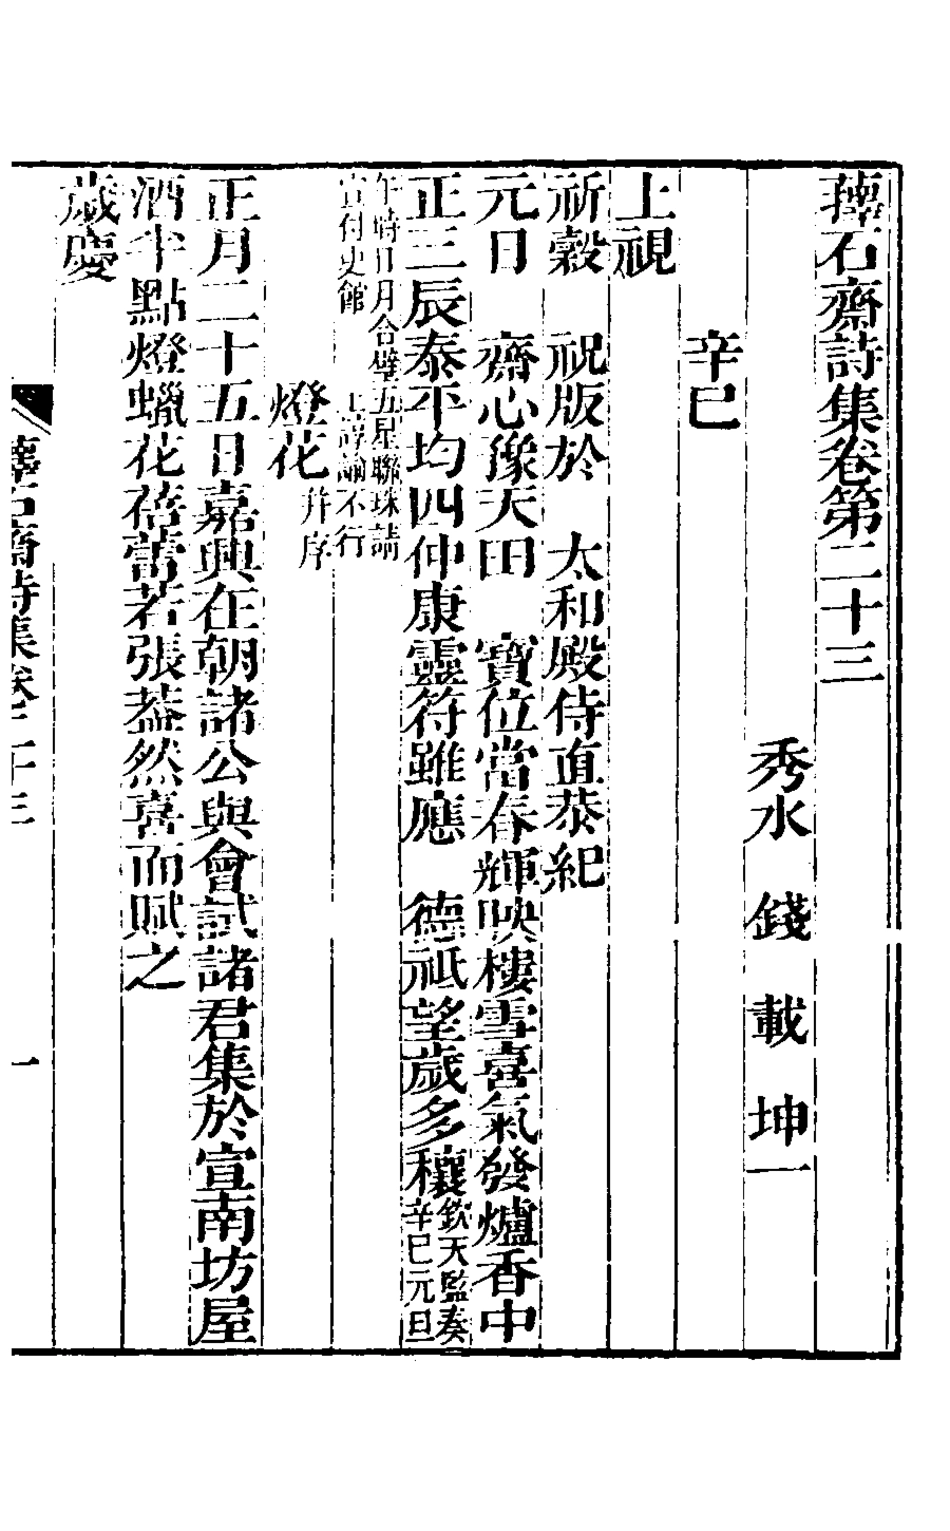 蘀石齋詩集卷第二十三
秀水 錢 載 坤一
辛巳
上視
祈穀 祝版於 太和殿侍直恭紀
元日 齋心豫天田 寶位當春輝映樓雪喜氣發爐香中
正三辰泰平均四仲康靈符雖應 德祗望歲多穰
欽天監奏
辛巳元旦
午時日月合璧五星聯珠請
宣付史館 上諄諭不行
燈花并序
正月二十五日嘉興在朝諸公與會試諸君集於宣南坊屋
酒半點燈蠟花蓓蕾若張葢然喜而賦之
歲慶
蘀石齋詩集卷二十三 一